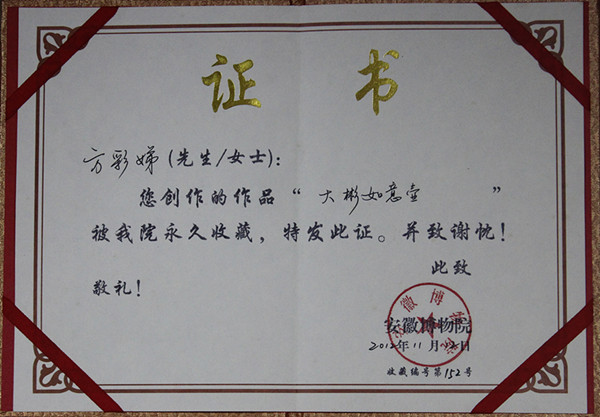 证 书
方彩娣(先生/女士):
您创作的作品“大彬如意壶”
被我院永久收藏，特发此证。并致谢忱!
此致
敬礼!
安徽博物院
2012年11月 日
收藏编号第152号